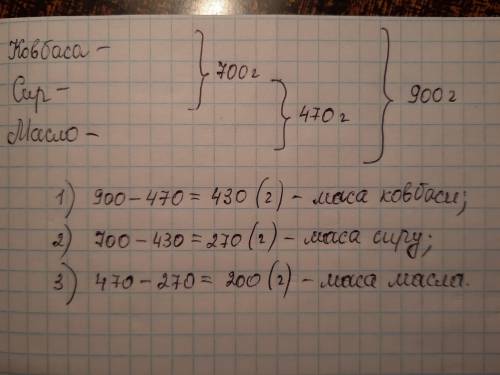 Ковбаса –
Сир –
Масло –
700 г
470 г
900 г
1) 900 – 470 = 430 (г) – маса ковбаси;
2) 700 – 430 = 270 (г) – маса сиру;
3) 470 – 270 = 200 (г) – маса масла.